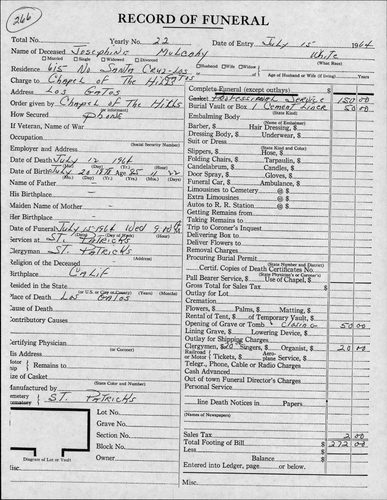 266
RECORD OF FUNERAL
Total No. Yearly No. 22 Date of Entry July 15 1964
Name of Deceased Josephine Mulcahy White
(What Race)
Married Single Widowed Divorced Husband Wife Widow
Residence 615 No Santa Cruz-Los Gatos of Age of Husband or Wife (if living) Years
Charge to Chapel of The Hills
Address Los Gatos
Order given by Chapel of The Hills
How Secured Phone
If Veteran, Name of War
(Social Security Number)
Occupation
Employer and Address
Date of Death July 12 1964
Date of Birth July 20 1878 Age 85 11 22
(Mo.) (Day) (Year) (Yrs.) (Mos.) (Days)
Name of Father
His Birthplace
Maiden Name of Mother
Her Birthplace
Date of Funeral July 15 1964 Wed 9:00
Services at St. Patricks
(Address)
Clergyman St. Patricks
Religion of the Deceased
Birthplace Calif
Resided in the State
(or U.S. or City or County) (Years) (Months)
Place of Death Los Gatos
Cause of Death
Contributory Causes
Certifying Physician
(or Coroner)
His Address
Motor Remains to
Size of Casket
(State Color and Number)
Manufactured by
Cemetery
Crematory St. Patricks
Lot No.
Grave No.
Section No.
Block No.
Owner
Diagram of Lot or Vault
Complete Funeral (except outlays) $
Casket Professional Service 150 00
(State Kind)
Burial Vault or Box 1 Cement Liner 50 00
Embalming Body
(Name of Embalmer)
Barber, $ Hair Dressing, $
Dressing Body, $ Underwear, $
Suit or Dress
(State Kind and Color)
Slippers, $ Hose, $
Folding Chairs, $ Tarpaulin, $
Candelabrum, $ Candles, $
Door Spray, $ Gloves, $
Funeral Car, $ Ambulance, $
Limousines to Cemetery @ $
Extra Limousines @ $
Autos to R. R. Station @ $
Getting Remains from
Taking Remains to
Trip to Coroner's Inquest
Delivering Box to
Deliver Flowers to
Removal Charges
Procuring Burial Permit
(State Number and District)
Certif. Copies of Death Certificates No.
(State Physician's or Coroner's)
Pall Bearer Service, $ Use of Chapel, $
Gross Total for Sales Tax $
Outlay for Lot
Cremation
Flowers, $ Palms, $ Matting, $
Rental of Tent, $ of Temporary Vault, $
Opening of Grave or Tomb + Closing 50 00
Lining Grave, $ Lowering Device, $
Outlay for Shipping Charges
Clergymen, $20 Singers, $ Organist, $ 20 00
Railroad or Motor Tickets, $ Aeroplane Service, $
Telegr., Phone, Cable or Radio Charges
Cash Advanced
Out of town Funeral Director's Charges
Personal Service
line Death Notices in Papers
(Names of Newspapers)
Sales Tax 2 00
Total Footing of Bill $ 272 00
Less
Balance $
Entered into Ledger, page or below.
Misc. Misc.